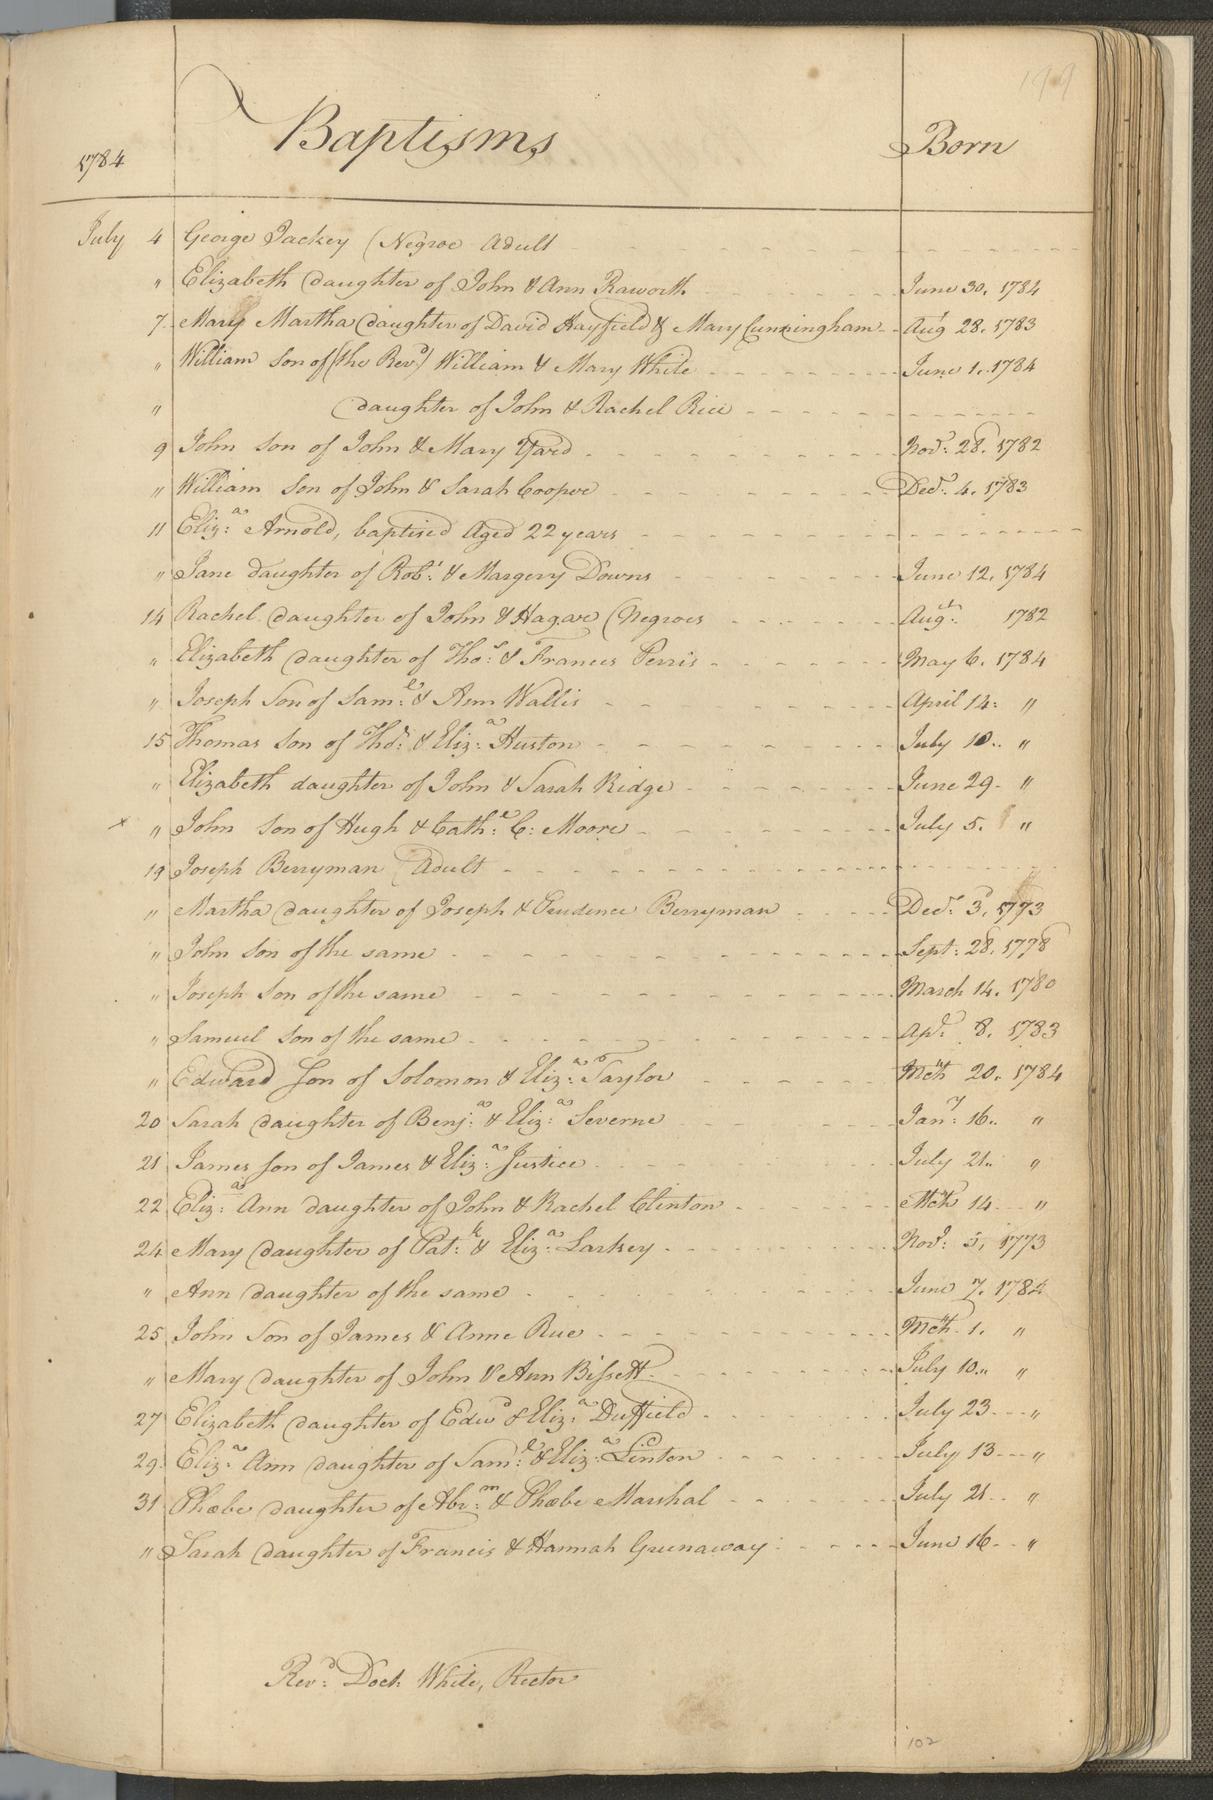 199
1784 Baptisms Born
July 4 George Jackey (Negroe Adult - - - - - -
" Elizabeth daughter of John & Ann Raworth - - - June 30. 1784
7 Mary Martha daughter of David Hayfield & Mary Cunningham - - Augt 28. 1783
" William Son of (the Revd) William & Mary White - - - June 1. 1784
" daughter of John & Rachel Rice - - - - - -
9 John Son of John & Mary Yard - - - Novr: 28. 1782
" William Son of John & Sarah Cooper - - - Decr: 4. 1783
11 Eliza: Arnold, baptised Aged 22 years - - - - - -
" Jane daughter of Robt: & Margery Downs - - - June 12. 1784
14 Rachel daughter of John & Hagar (Negroes - - - Augt: 1782
" Elizabeth daughter of Thos: & Frances Perris - - - May 6. 1784
" Joseph Son of Saml: & Ann Wallis - - - April 14: "
15 Thomas Son of Thos: & Eliza: Huston - - - July 10.. "
" Elizabeth daughter of John & Sarah Ridge - - - June 29. "
x " John Son of Hugh & Cathe: C: Moore - - - July 5. "
19 Joseph Berryman (Adult - - - - - -
" Martha daughter of Joseph & Prudence Berryman - - - Decr: 3. 1773
" John Son of the same - - - Sept: 28. 1778
" Joseph Son of the same - - - March 14. 1780
" Samuel Son of the same - - - Apl: 8. 1783
" Edward Son of Solomon & Eliza: Taylor - - - Mch 20. 1784
20 Sarah daughter of Benja: & Eliza: Severne - - - Jany: 16.. "
21 James Son of James & Eliza: Justice - - - July 21.. "
22 Eliza: Ann daughter of John & Rachel Clinton - - - Mch 14 - - "
24 Mary daughter of Patk: & Eliza: Larkey - - - Novr: 5, 1773
" Ann daughter of the same - - - June 7. 1784
25 John Son of James & Anne Rue - - - Mch 1. "
" Mary daughter of John & Ann Bissett - - - July 10.. "
27 Elizabeth daughter of Edwd & Eliza: Duffield - - - July 23 - - "
29 Eliza: Ann daughter of Saml: & Eliza: Linton - - - July 13 - - "
31 Phœbe daughter of Abrm: & Phœbe Marshal - - - July 21 - - "
" Sarah daughter of Francis & Hannah Greenaway - - - June 16 - - "
Revd: Doctr White, Rector
102